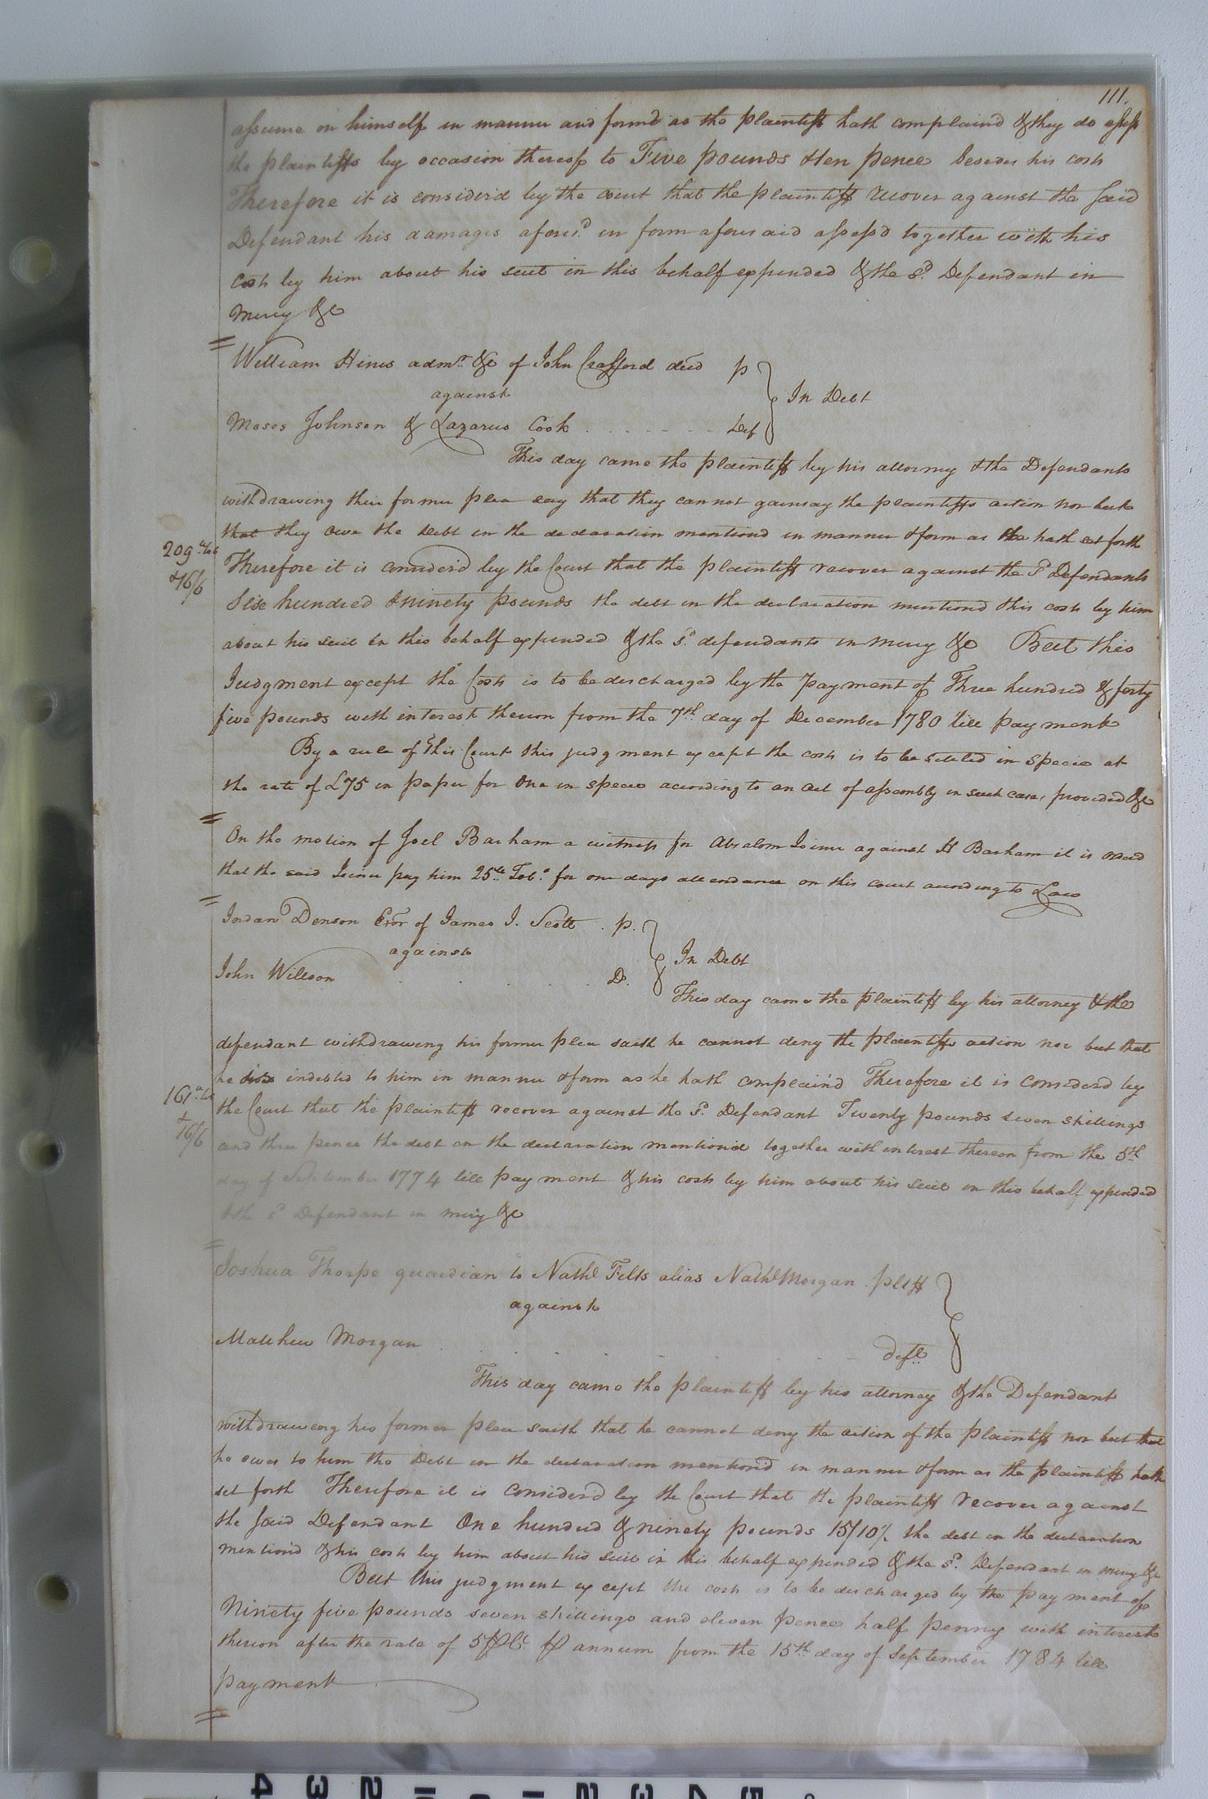 111.
assume on himself in manner and form'd as the plaintiff hath complaind & they do assess
the plaintiffs by occasion thereof to Five pounds & ten pence besides his costs
Therefore it is considerd by the court that the plaintiff recover against the said
Defendant his damages afores.d in form aforesaid assess'd together with his
costs by him about his suit in this behalf expended & the s.d Defendant in
Mercy &c
William Hines adm.r &c of John Crafford decd p
against
In Debt
Moses Johnson & Lazarus Cook . . . . . . . Def
This day came the plaintiff by his attorney & the Defendants
withdrawing their former plea say that they cannot gainsay the plaintiffs action nor but
that they owe the Debt in the declaration mentiond in manner & form as he hath set forth
209
& 16/6
Therefore it is considerd by the Court that the plaintiff recover against the s.d Defendants
Six hundred & ninety pounds the debt in the declaration mentiond & his costs by him
about his suit in this behalf expended & the s.d defendants in mercy &c But this
Judgment except the Costs is to be discharged by the payment of Three hundred & forty
five pounds with interest thereon from the 7th day of December 1780 till payment
By a rule of this Court this judgment except the costs is to be settled in specie at
the rate of £75 in paper for one in specie according to an act of assembly in such case, provided &c
On the motion of Joel Barham a witness for Absalom Joiner against H Barham it is orderd
that the said Joiner pay him 25lb Tob.o for one days attendance on this court according to Law
Jordan Denson Exor of James J. Scott . p.
against
In Debt
John Willson . . . . . . D.
This day came the plaintiff by his attorney & the
defendant withdrawing his former plea saith he cannot deny the plaintiffs action nor but that
he is indebted to him in manner & form as he hath complain'd Therefore it is considerd by
161
& 16/6
the Court that the plaintiff recover against the s.d Defendant Twenty pounds seven shillings
and three pence the debt in the declaration mention'd together with interest thereon from the 5th
day of September 1774 till payment & his costs by him about his suit in this behalf expended
& the s.d Defendant in mercy &c
Joshua Thorpe guardian to Nathl Felts alias Nathl Morgan pltff
against
Matthew Morgan . . . . . . deft
This day came the plaintiff by his attorney & the Defendant
withdrawing his former plea saith that he cannot deny the action of the plaintiff nor but that
he owes to him the Debt in the declaration mention'd in manner & form as the plaintiff hath
set forth Therefore it is consider'd by the Court that the plaintiff recover against
the said Defendant One hundred & ninety pounds 15/10½ the debt in the declaration
mention'd & his costs by him about his suit in this behalf expended & the s.d Defendant in mercy &c
But this judgment except the costs is to be discharged by the payment of
Ninety five pounds seven shillings and eleven pence half penny with interest
thereon after the rate of 5 p C.t p annum from the 15th day of September 1784 till
payment